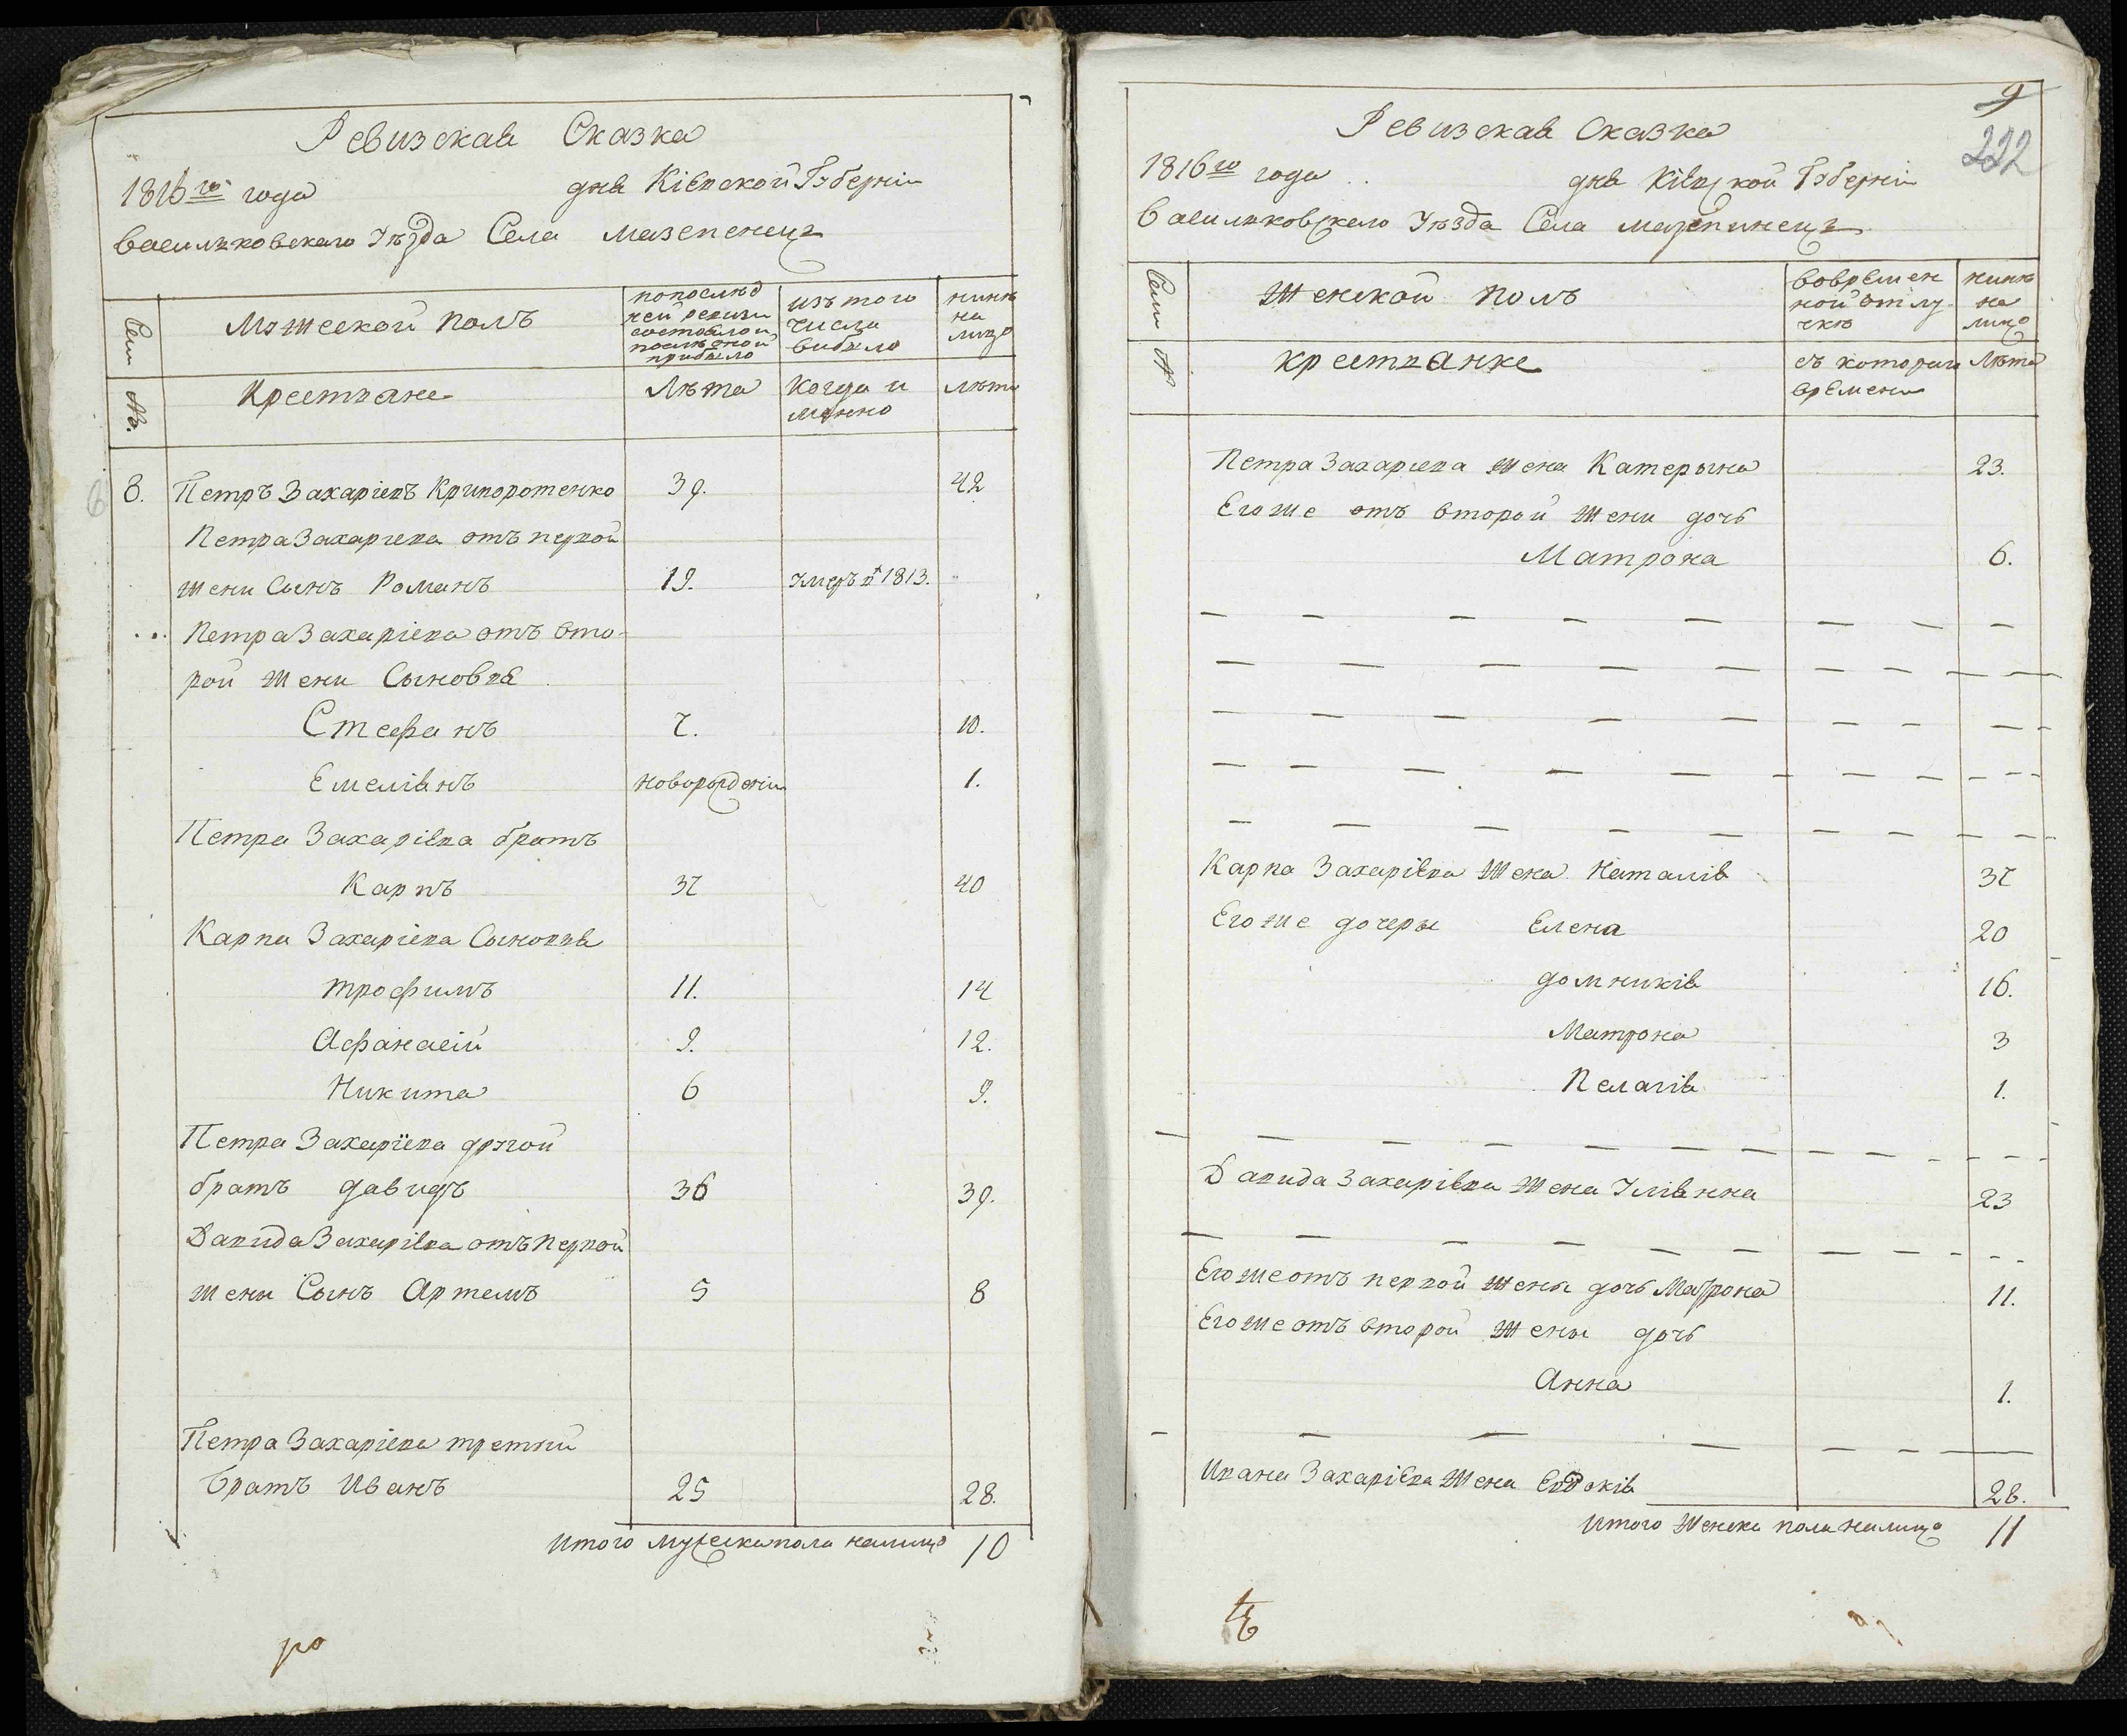 Ревизская Сказка
1816го года дня Кіевской Губерніи
Васильковскаго Уѣзда Села Мазепенецъ
Сем №.
Мужеской полъ
попослѣд
ней ревизи
состояло и
послѣ оной
прибыло
изъ того
числа
выбыло
нинѣ
на
лицо
Крестьяне
Лѣта
Когда и
менно
лѣта
8. Петръ Захаріевъ Криворотенко 39. 42
Петра Захариева отъ первой
жени Сынъ Романъ 19. умеръ въ 1813.
Петра Захаріева отъ вто-
рой жени Сыновья
Стефанъ 7. 10.
Емеліянъ новорожденій 1.
Петра Захаріева братъ
Карпъ 37 40
Карпа Захаріева Сыновья
Трофимъ 11. 14
Афанасій 9. 12.
Никита 6 9.
Петра Захаріева другой
братъ Давидъ 36 39.
Давида Захаріева отъ первой
жени Сынъ Артемъ 5 8
Петра Захаріева третий
братъ Иванъ 25 28.
Итого мужеска пола налицо 10
ро
9
222
Ревизская Сказка
1816го года дня Кіевской Губерніи
Васильковскаго Уѣзда Села Мазепинецъ
Сем №
Женской полъ
вовремен
ной отлу
чкѣ
нинѣ
на
лицо
крестьянке
съ которого
времени
Лѣта
Петра Захариева жена Катерына 23.
Егоже отъ второй жени дочь
Матрона 6.
Карпа Захаріева жена Наталія 37
Егоже дочеры Елена 20
Домникія 16.
Матрона 3
Пелагія 1.
Давида Захаріева жена Уліянна 23
Егоже отъ первой жены дочь Матрона 11.
Егоже отъ второй жены дочь
Анна 1.
Ивана Захаріева жена Евдокія 28.
Итого женска пола налицо 11